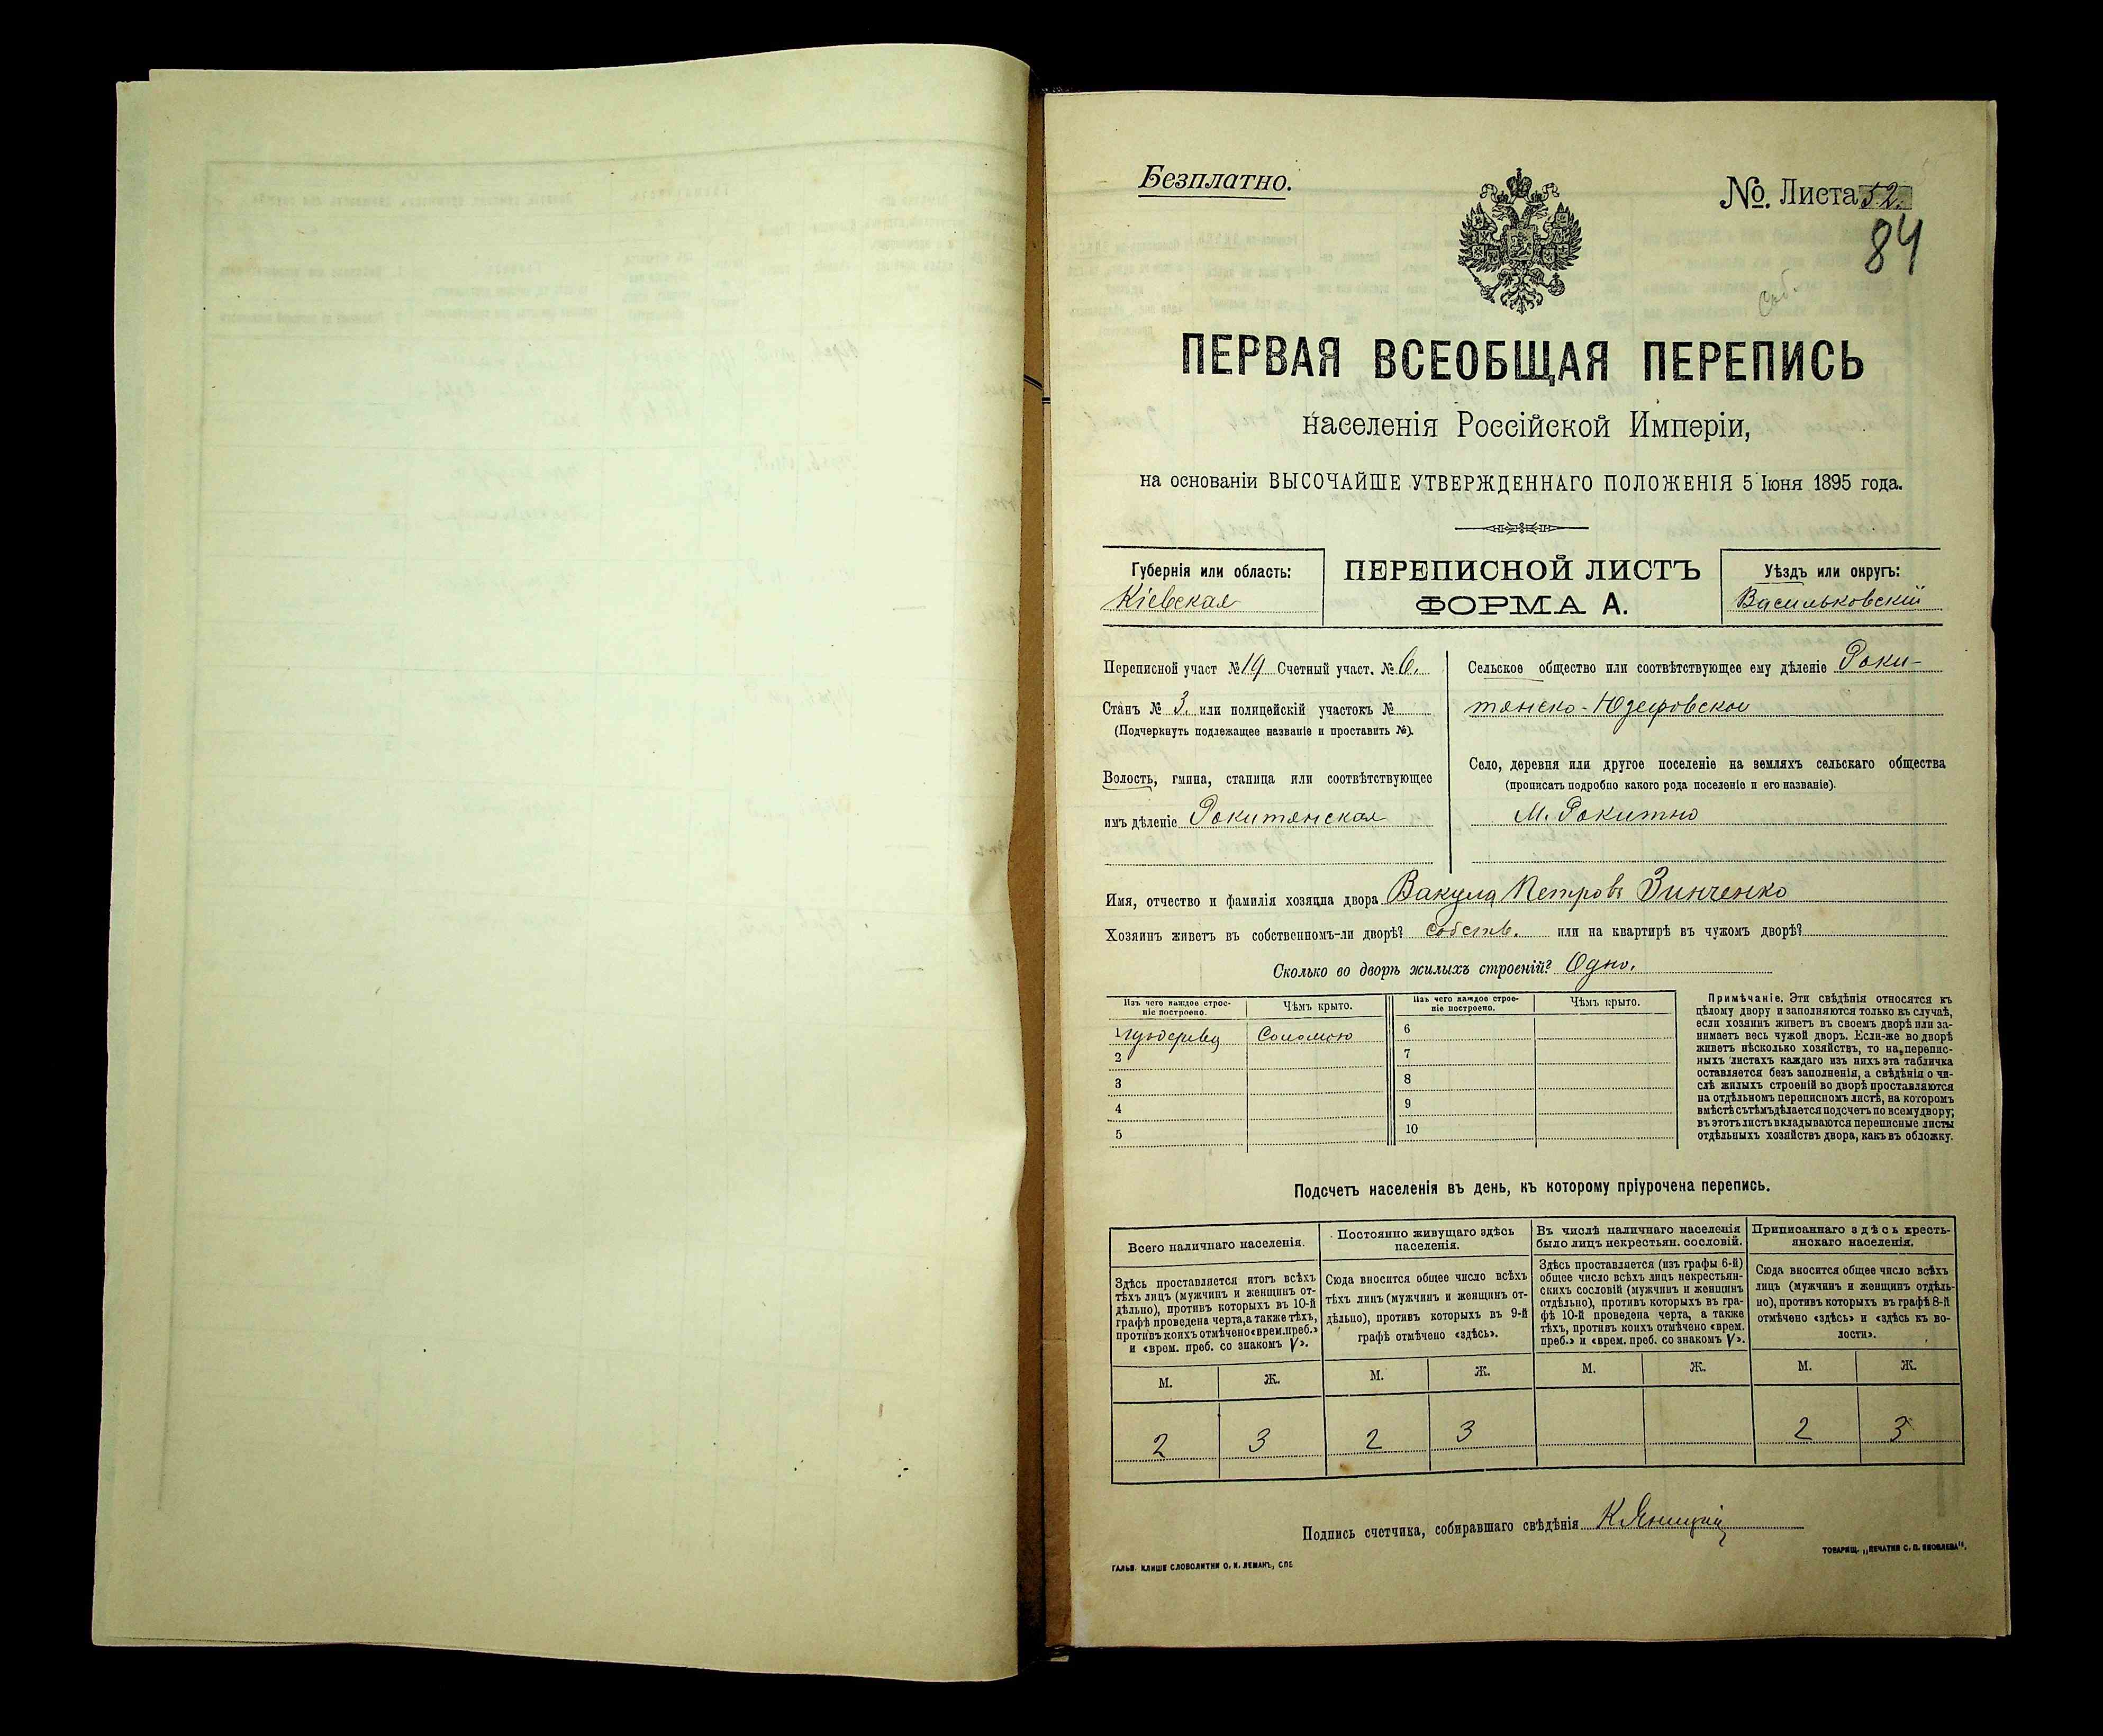 Безплатно.
№. Листа 52.
84
ПЕРВАЯ ВСЕОБЩАЯ ПЕРЕПИСЬ
населенія Россійской Имперіи,
на основаніи ВЫСОЧАЙШЕ УТВЕРЖДЕННАГО ПОЛОЖЕНІЯ 5 Іюня 1895 года.
Губернія или область:
Кіевская
ПЕРЕПИСНОЙ ЛИСТЪ
ФОРМА А.
Уѣздъ или округъ:
Васильковскій
Переписной участ №19 Счетный участ. № 6.
Станъ № 3. или полицейскій участокъ №
(Подчеркнуть подлежащее названіе и проставить №).
Волость, гмина, станица или соотвѣтствующее
имъ дѣленіе Рокитянская
Сельское общество или соотвѣтствующее ему дѣленіе Роки-
тянско-Юзефовское
Село, деревня или другое поселеніе на земляхъ сельскаго общества
(прописать подробно какого рода поселеніе и его названіе).
М. Рокитно
Имя, отчество и фамилія хозяина двора Вакула Петровъ Зинченко
Хозяинъ живетъ въ собственномъ-ли дворѣ? собств. или на квартирѣ въ чужомъ дворѣ?
Сколько во дворѣ жилыхъ строеній? Одно.
Изъ чего каждое строе-
ніе построено.
Чѣмъ крыто.
Изъ чего каждое строе-
ніе построено.
Чѣмъ крыто.
1 Соломою
2
3
4
5
6
7
8
9
10
Примѣчаніе. Эти свѣдѣнія относятся къ
цѣлому двору и заполняются только въ случаѣ,
если хозяинъ живетъ въ своемъ дворѣ или за-
нимаетъ весь чужой дворъ. Если-же во дворѣ
живетъ нѣсколько хозяйствъ, то на перепис-
ныхъ листахъ каждаго изъ нихъ эта табличка
оставляется безъ заполненія, а свѣдѣнія о чи-
слѣ жилыхъ строеній во дворѣ проставляются
на отдѣльномъ переписномъ листѣ, на которомъ
вмѣстѣ съ тѣмъ дѣлается подсчетъ по всему двору;
въ этотъ листъ вкладываются переписные листы
отдѣльныхъ хозяйствъ двора, какъ въ обложку.
Подсчетъ населенія въ день, къ которому пріурочена перепись.
Всего наличнаго населенія.
Здѣсь проставляется итогъ всѣхъ
тѣхъ лицъ (мужчинъ и женщинъ от-
дѣльно), противъ которыхъ въ 10-й
графѣ проведена черта, а также тѣхъ,
противъ коихъ отмѣчено «врем. преб.»
и «врем. преб. со знакомъ V».
Постоянно живущаго здѣсь
населенія.
Сюда вносится общее число всѣхъ
тѣхъ лицъ (мужчинъ и женщинъ от-
дѣльно), противъ которыхъ въ 9-й
графѣ отмѣчено «здѣсь».
Въ числѣ наличнаго населенія
было лицъ некрестьян. сословій.
Здѣсь проставляется (изъ графы 6-й)
общее число всѣхъ лицъ некрестьян-
скихъ сословій (мужчинъ и женщинъ
отдѣльно), противъ которыхъ въ гра-
фѣ 10-й проведена черта, а также
тѣхъ, противъ коихъ отмѣчено «врем.
преб.» и «врем. преб. со знакомъ V».
Приписаннаго здѣсь кресть-
янскаго населенія.
Сюда вносится общее число всѣхъ
лицъ (мужчинъ и женщинъ отдѣль-
но), противъ которыхъ въ графѣ 8-й
отмѣчено «здѣсь» и «здѣсь къ во-
лости».
М. Ж. М. Ж. М. Ж. М. Ж.
2 3 2 3 2 3
Подпись счетчика, собиравшаго свѣдѣнія
ГАЛЬВ. КЛИШЕ СЛОВОЛИТНИ О. И. ЛЕМАНЪ, СПБ
ТОВАРИЩ. „ПЕЧАТНЯ С. П. ЯКОВЛЕВА".